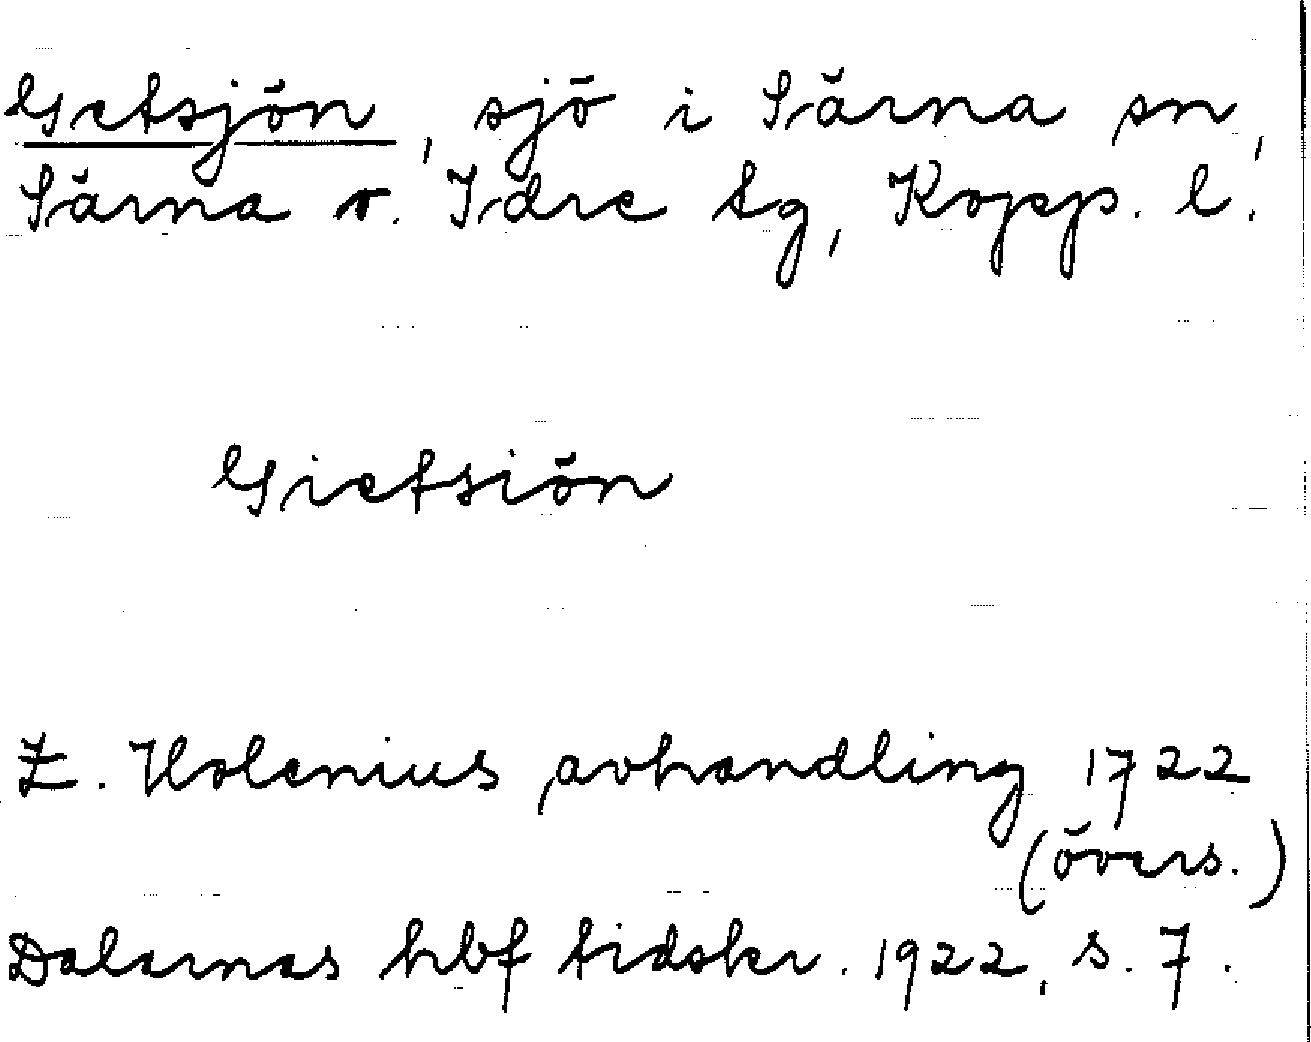 Getsjön, sjö i Särna sn,
Särna o. Idre tg, Kopp. l.
Gietsiön
Z. Holenius avhandling 1722
(övers.)
Dalarnas hbf tidskr. 1922, s. 7.